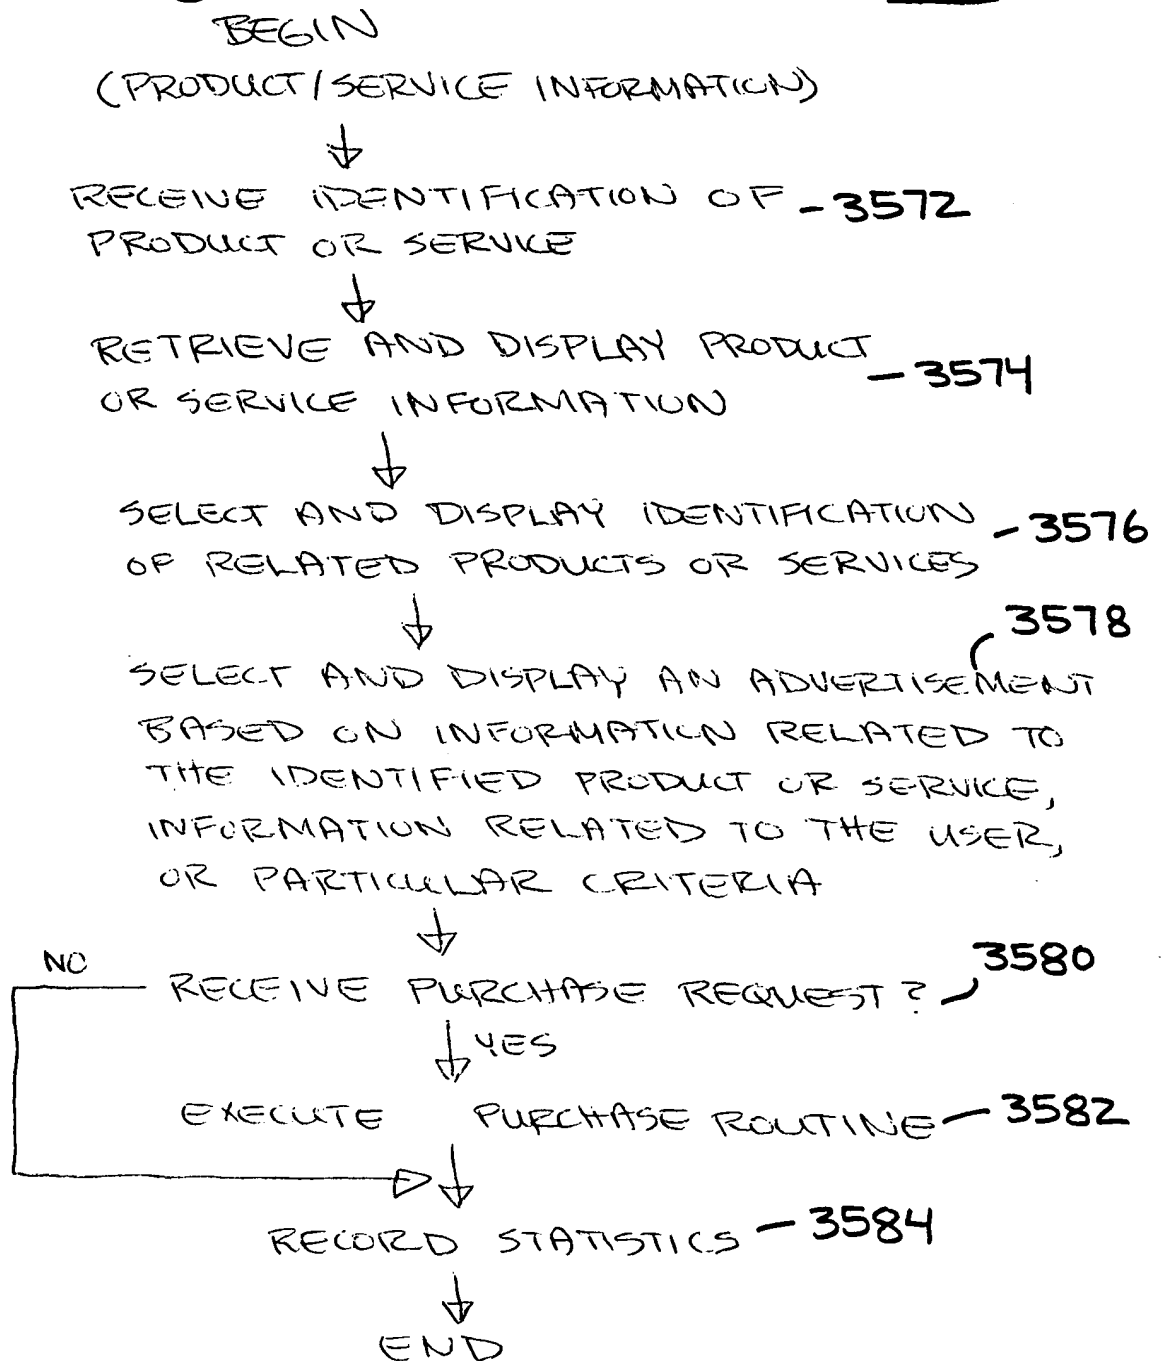 BEGIN
(PRODUCT/SERVICE INFORMATION)
RECEIVE IDENTIFICATION OF - 3572
PRODUCT OR SERVICE
RETRIEVE AND DISPLAY PRODUCT
OR SERVICE INFORMATION - 3574
SELECT AND DISPLAY IDENTIFICATION - 3576
OF RELATED PRODUCTS OR SERVICES
3578
SELECT AND DISPLAY AN ADVERTISEMENT
BASED ON INFORMATION RELATED TO
THE IDENTIFIED PRODUCT OR SERVICE,
INFORMATION RELATED TO THE USER,
OR PARTICULAR CRITERIA
NO
3580
RECEIVE PURCHASE REQUEST?
YES
EXECUTE PURCHASE ROUTINE - 3582
RECORD STATISTICS - 3584
END